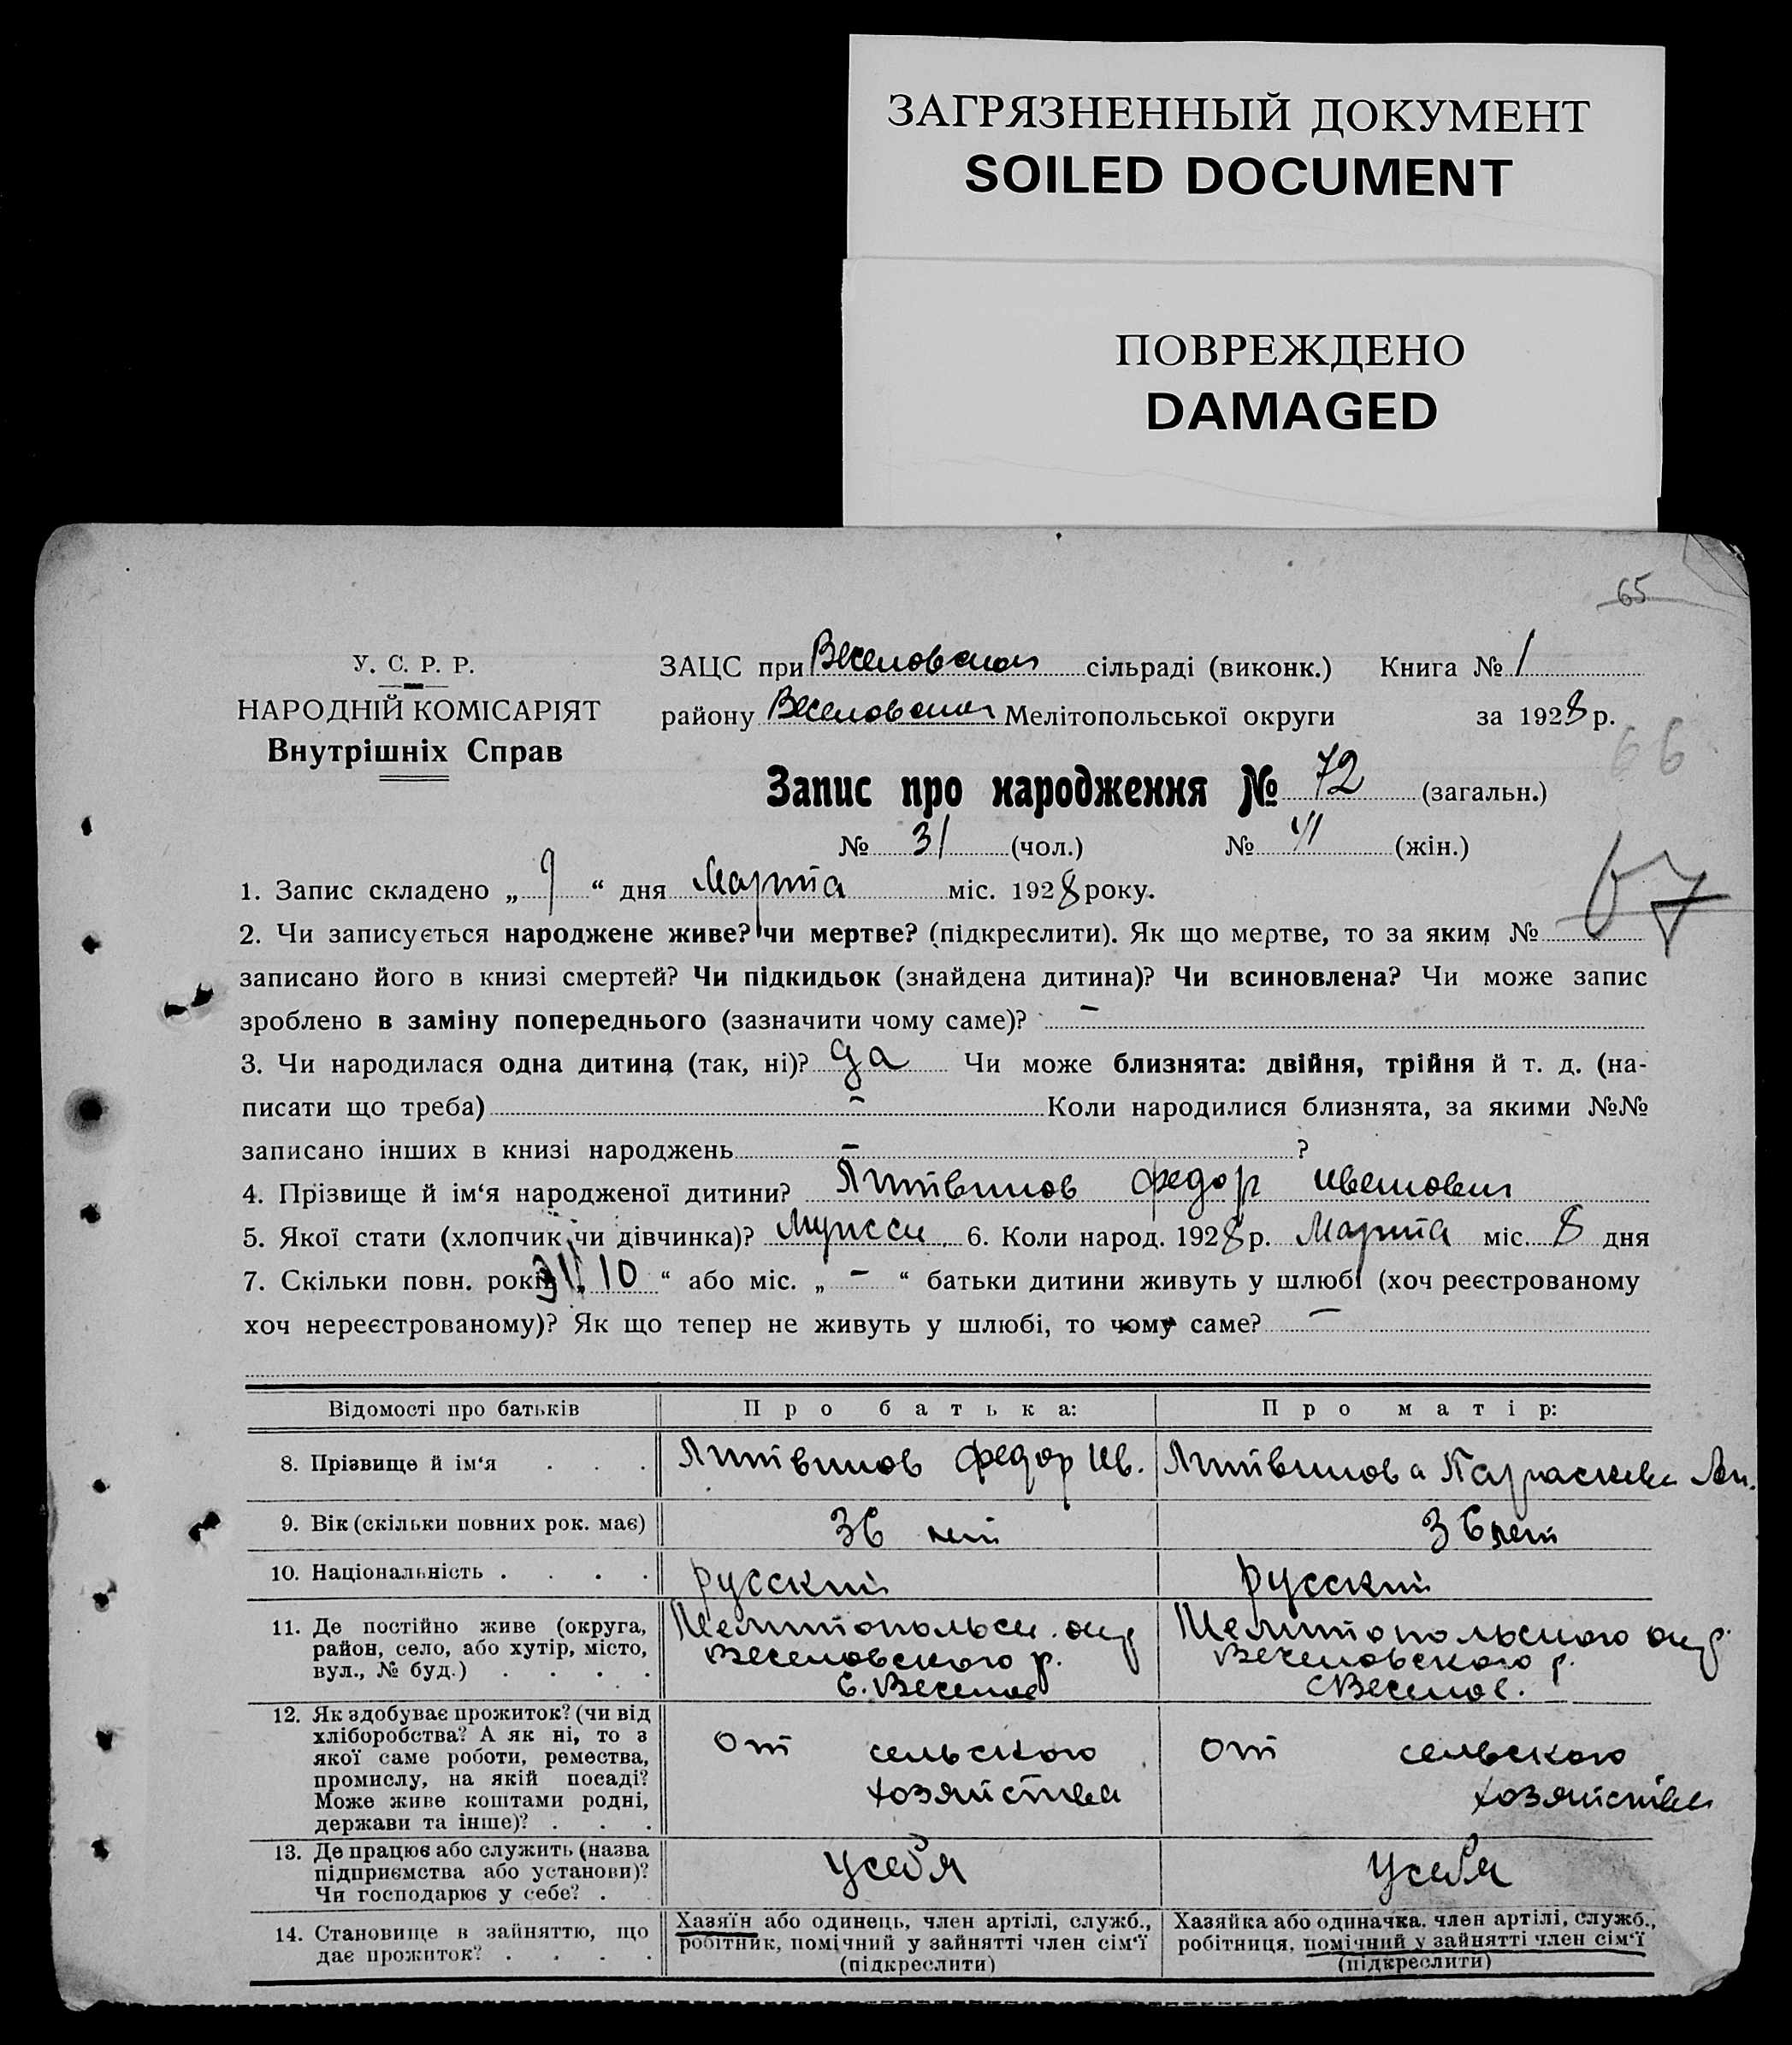 ЗАГРЯЗНЕННЫЙ ДОКУМЕНТ
SOILED DOCUMENT
ПОВРЕЖДЕНО
DAMAGED
65
У. С. Р. Р.
НАРОДНІЙ КОМІСАРІЯТ
Внутрішніх Справ
ЗАЦС при Веселовском сільраді (виконк.) Книга № 1
району Веселовском Мелітопольської округи за 1928 р.
66
Запис про народження № 72 (загальн.)
№ 31 (чол.) № (жін.)
67
1. Запис складено „ 9 “ дня Марта міс. 1928 року.
2. Чи записується народжене живе? чи мертве? (підкреслити). Як що мертве, то за яким №
записано його в книзі смертей? Чи підкидьок (знайдена дитина)? Чи всиновлена? Чи може запис
зроблено в заміну попереднього (зазначити чому саме)? –
3. Чи народилася одна дитина (так, ні)? да Чи може близнята: двійня, трійня й т. д. (на-
писати що треба) – Коли народилися близнята, за якими №№
записано інших в книзі народжень – ?
4. Прізвище й ім‘я народженої дитини? Литвинов Федор
5. Якої стати (хлопчик чи дівчинка)? 6. Коли народ. 1928 р. Марта міс. 8 дня
7. Скільки повн. років „ 10 “ або міс. „ – “ батьки дитини живуть у шлюбі (хоч реєстрованому
хоч нереєстрованому)? Як що тепер не живуть у шлюбі, то чому саме? –
Відомості про батьків Про батька: Про матір:
8. Прізвище й ім‘я . . . Литвинов Федор Ив. Литвинова Параскева
9. Вік (скільки повних рок. має) 36 лет 36 лет
10. Національність . . . . русский русский
11. Де постійно живе (округа, район, село, або хутір, місто, вул., № буд.) . . . .
Мелитопольск. окр Веселовского р. С. Веселое
Мелитопольского окр. Веселовского р. с Веселое.
12. Як здобуває прожиток? (чи від хліборобства? А як ні, то з якої саме роботи, ремества, промислу, на якій посаді? Може живе коштами родні, держави та інше)? . . .
от сельского хозяйства
от сельского хозяйства
13. Де працює або служить (назва підприємства або установи)? Чи господарює у себе? .
У себя
У себя
14. Становище в зайняттю, що дає прожиток? . . . .
Хазяїн або одинець, член артілі, служб., робітник, помічний у зайнятті член сім‘ї (підкреслити)
Хазяйка або одиначка, член артілі, служб., робітниця, помічний у зайнятті член сім‘ї (підкреслити)